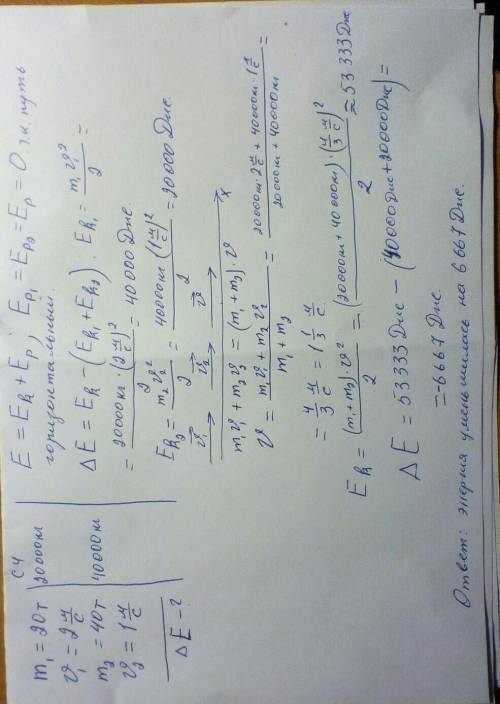 СИ
m₁ = 20т | 20000кг
v₁ = 2 м/с
m₂ = 40т | 40000кг
v₂ = 1 м/с
ΔE - ?
E = Eк + Eр; Eр₁ = Eр₂ = Eр = 0, т.к. путь
горизонтальный.
ΔE = Eк - (Eк₁ + Eк₂). Eк₁ = m₁v₁²/2 =
= 20000кг · (2 м/с)²/2 = 40000 Дж.
Eк₂ = m₂v₂²/2 = 40000кг (1 м/с)²/2 = 20000 Дж.
v₁ v₂ v x
m₁v₁ + m₂v₂ = (m₁ + m₂) · v
v = (m₁v₁ + m₂v₂)/(m₁ + m₂) = (20000кг · 2 м/с + 40000кг · 1 м/с)/(20000кг + 40000кг) =
= 4/3 м/с = 1 1/3 м/с
Eк = (m₁ + m₂) · v²/2 = (20000кг + 40000кг) · (4/3 м/с)²/2 ≈ 53333 Дж
ΔE = 53333 Дж - (40000 Дж + 20000 Дж) =
= -6667 Дж.
Ответ: энергия уменьшилась на 6667 Дж.